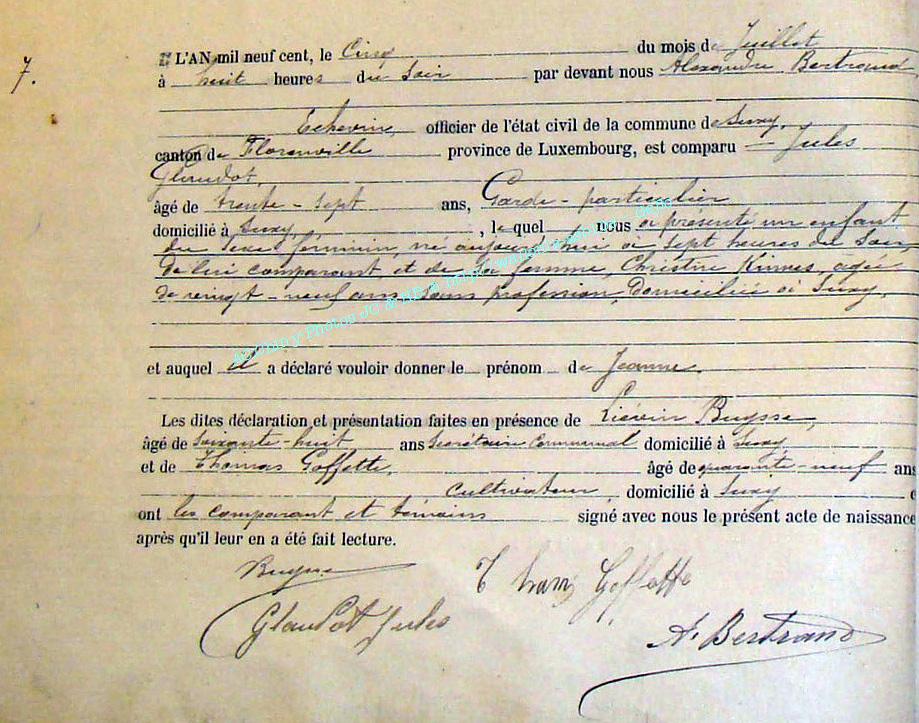 7.
L'AN mil neuf cent, le Cinq du mois de Juillet
à huit heures du Soir par devant nous Alexandre Bertrand
Echevin, officier de l'état civil de la commune de Suxy,
canton de Florenville province de Luxembourg, est comparu Jules
Glaudot,
âgé de trente-sept ans, Garde-particulier
domicilié à Suxy, , lequel nous a présenté un enfant
du sexe féminin, né aujourd'hui à sept heures du Soir,
de lui comparant et de sa femme, Christine Kinnes, âgée
de vingt-neuf ans, sans profession, domiciliée à Suxy,
et auquel il a déclaré vouloir donner le prénom de Jeanne.
Les dites déclaration et présentation faites en présence de Liévin Buysse,
âgé de soixante-huit ans Secrétaire Communal domicilié à Suxy
et de Thomas Goffette, âgé de quarante-neuf ans
Cultivateur, domicilié à Suxy
ont les comparant et témoins signé avec nous le présent acte de naissance
après qu'il leur en a été fait lecture.
Buysse
Thomas Goffette
Glaudot Jules
A. Bertrand